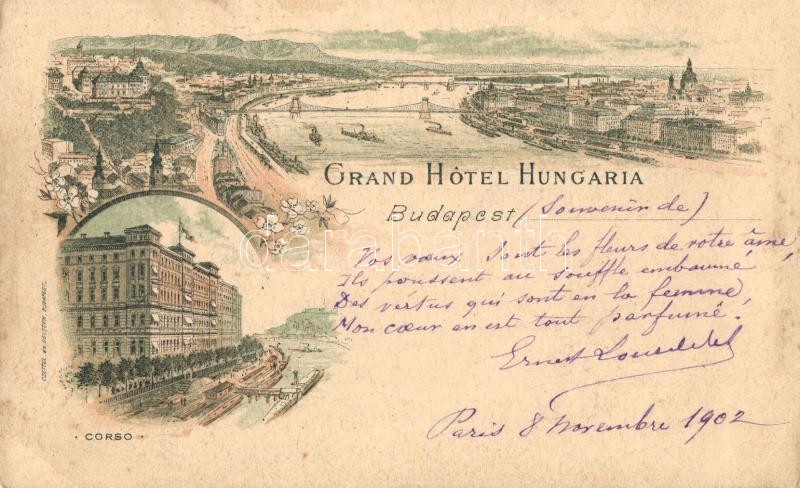 GRAND HÔTEL HUNGARIA
Budapest (Souvenir de)
Vos vœux sont les fleurs de votre âme,
Ils poussent au souffle embaumé
Des vertus qui sont en la femme,
Mon cœur en est tout parfumé!
Ernest
Paris 8 novembre 1902
· CORSO ·
darabanth.com